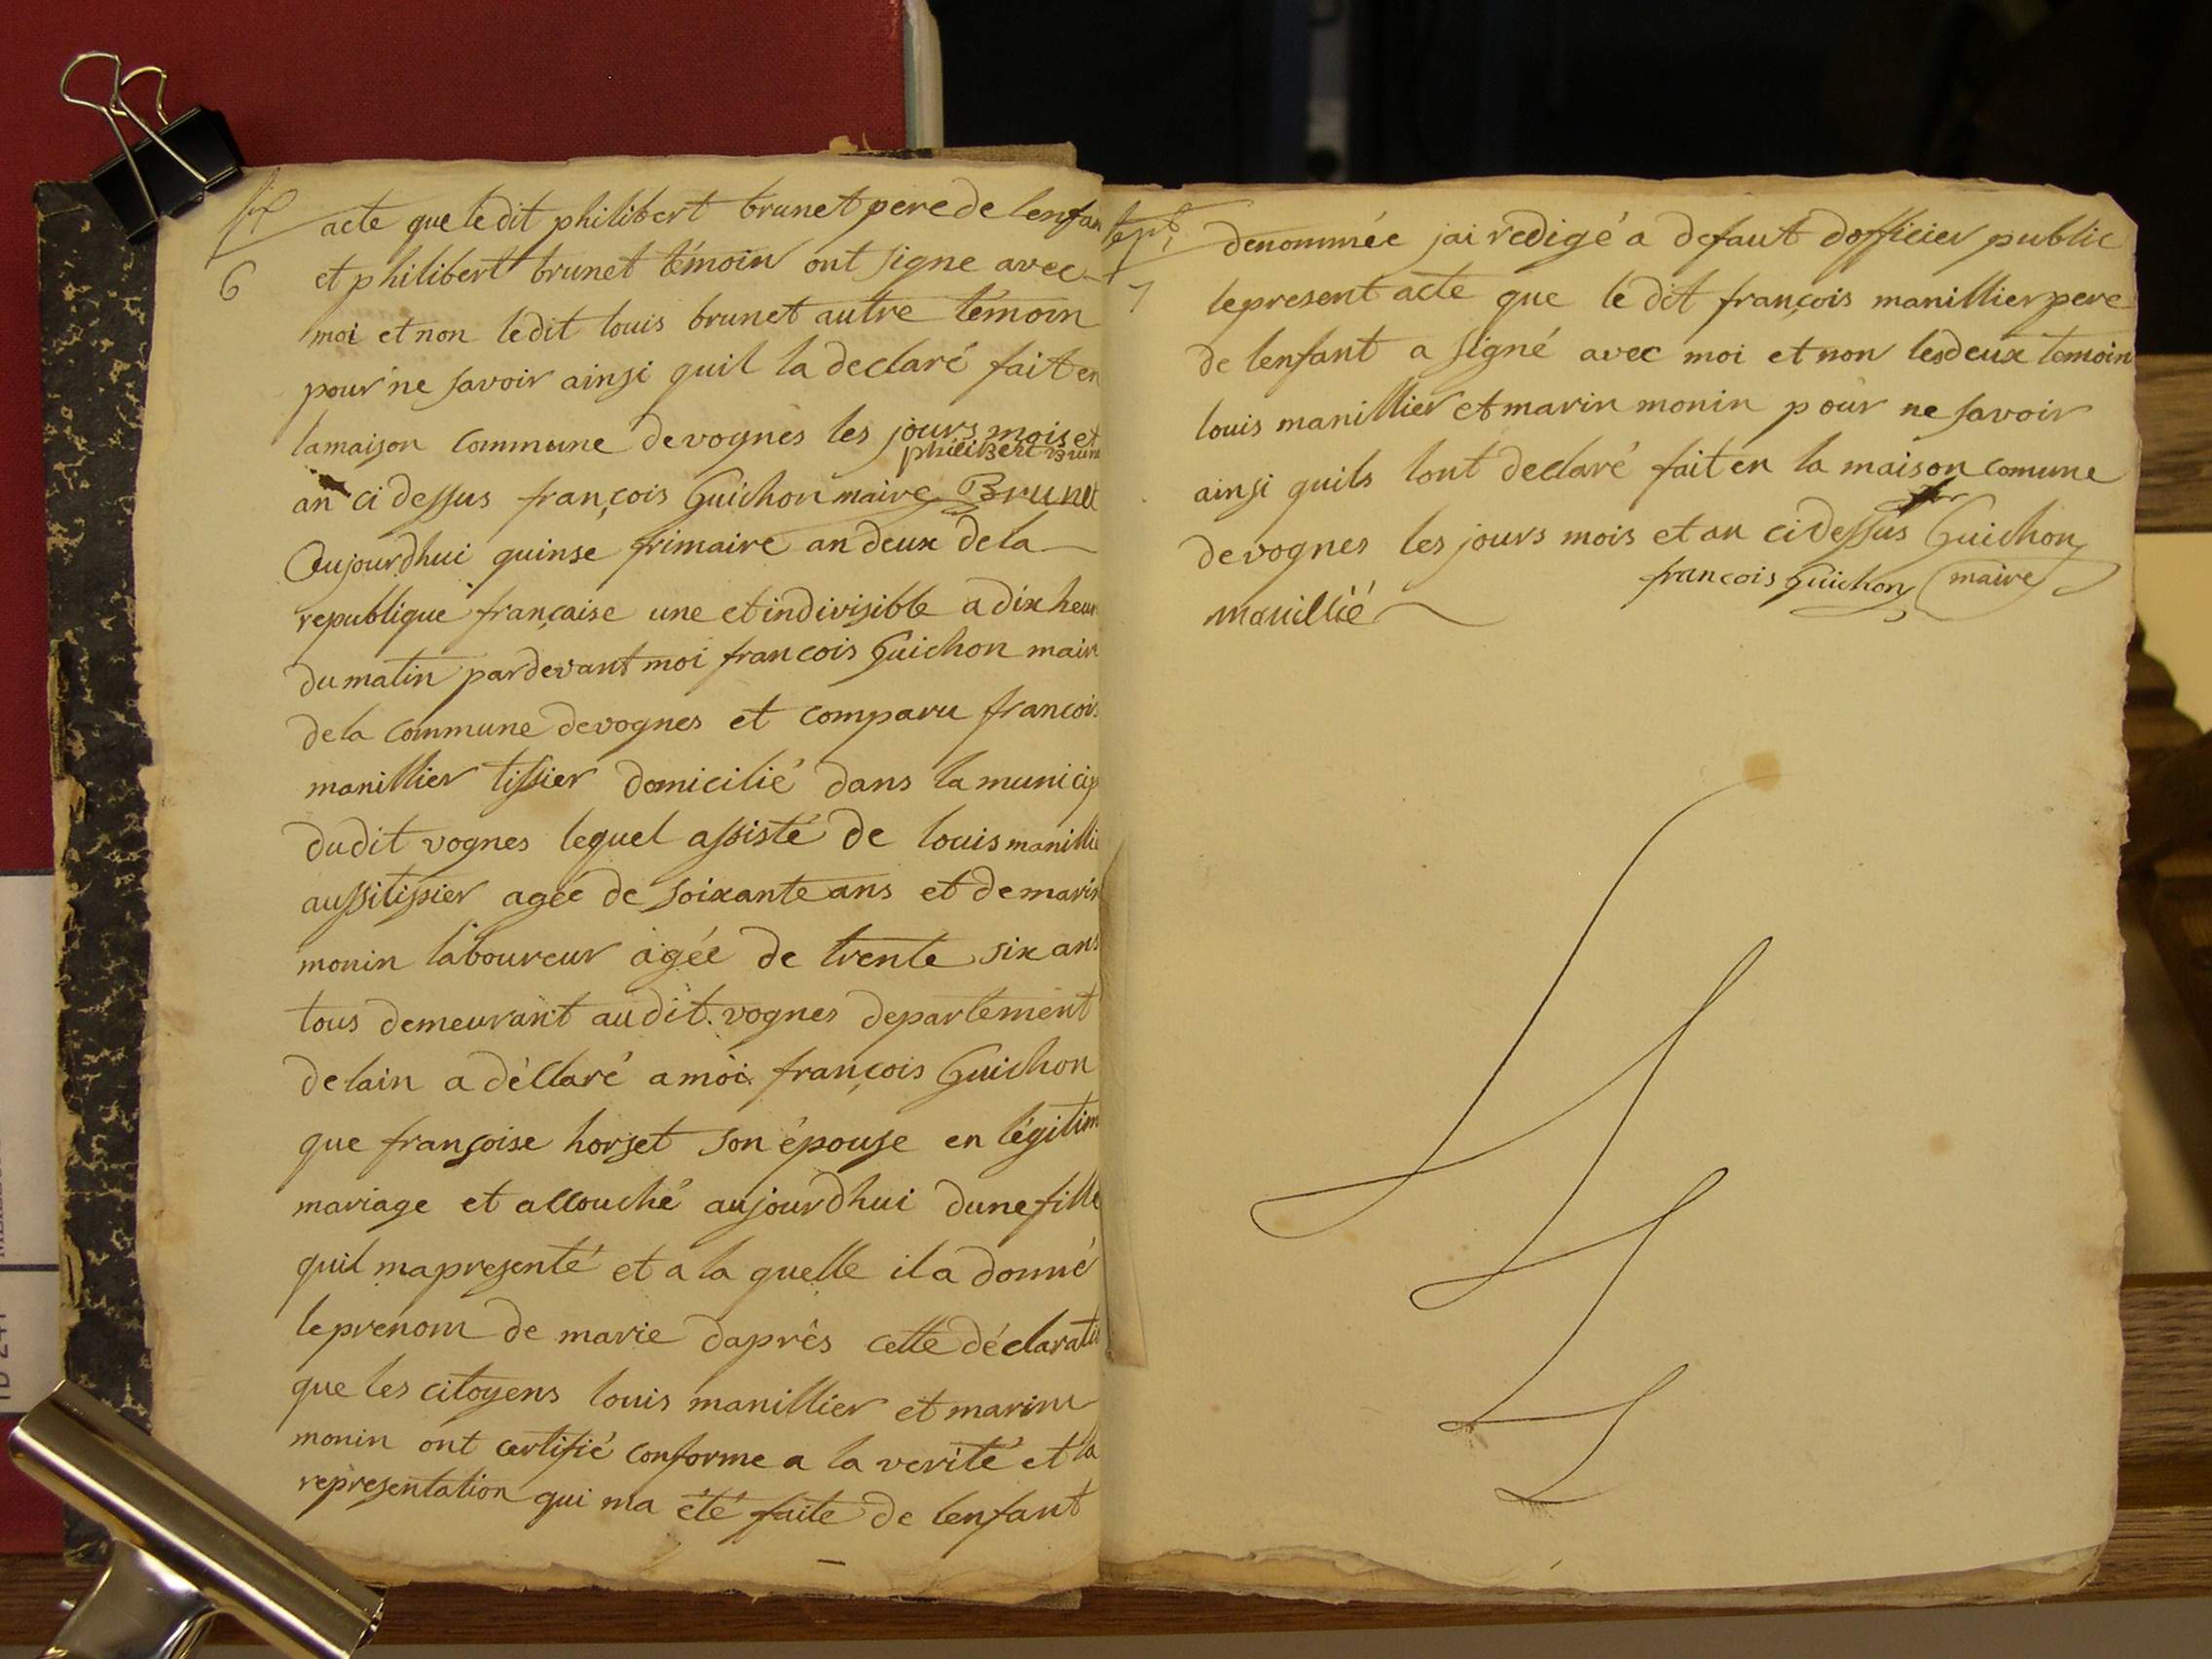 six
6
acte que le dit philibert brunet pere de lenfan
et philibert brunet témoin ont signe avec
moi et non ledit louis brunet autre témoin
pour ne savoir ainsi quil la declaré fait en
lamaison commune devognes les jours mois et
philibert brun
an ci dessus françois Guichon maire Brunet
Aujourdhui quinse frimaire an deux dela
republique française une et indivisible a dix heur
du matin pardevant moi francois Guichon mair
dela commune devognes et comparu francois
manillier tissier domicilié dans la municip
dudit vognes lequel assisté de louis manilli
aussi tissier agée de soixante ans et de marin
monin laboureur agée de trente six ans
tous demeurant audit vognes departement
delain a déclaré a moi françois Guichon
que françoise horset son épouse en légitim
mariage et allouché aujourdhui dune fille
quil mapresenté et a la quelle il a donné
leprenom de marie daprês cette déclaratio
que les citoyens louis manillier et marin
monin ont certifié conforme a la verité et la
representation qui ma été faite de lenfant
sept
7
denommée jai redigé a defaut dofficier public
lepresent acte que le dit françois manillier pere
de lenfant a signé avec moi et non les deux temoin
louis manillier et marin monin pour ne savoir
ainsi quils lont declaré fait en la maison comune
devognes les jours mois et an cidessus Guichon
francois Guichon maire
manillié